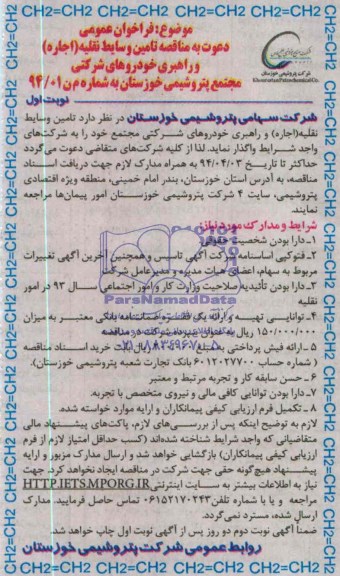 موضوع: فراخوان عمومی
دعوت به مناقصه تامین وسایط نقلیه (اجاره)
و راهبری خودروهای شرکتی
مجتمع پتروشیمی خوزستان به شماره م ن ۹۴/۰۱
شرکت پتروشیمی خوزستان
Khuzestan Petrochemical Co.
نوبت اول
شرکت سهامی پتروشیمی خوزستان در نظر دارد تامین وسایط
نقلیه(اجاره) و راهبری خودروهای شرکتی مجتمع خود را به شرکت‌های
واجد شرایط واگذار نماید. لذا از کلیه شرکت‌های متقاضی دعوت می‌گردد
حداکثر تا تاریخ ۹۴/۰۴/۰۳ به همراه مدارک لازم جهت دریافت اسناد
مناقصه، به آدرس استان خوزستان، بندر امام خمینی، منطقه ویژه اقتصادی
پتروشیمی، سایت ۴ شرکت پتروشیمی خوزستان امور پیمان‌ها مراجعه
نمایند.
شرایط و مدارک مورد نیاز:
۱ـ دارا بودن شخصیت حقوقی
۲ـ فتوکپی اساسنامه شرکت آگهی تاسیس و همچنین آخرین آگهی تغییرات
مربوط به سهام، اعضای هیات مدیره و مدیرعامل شرکت
۳ـ دارا بودن تأئیدیه صلاحیت وزارت کار و امور اجتماعی سال ۹۳ در امور
نقلیه
۴ـ توانایی تهیه و ارائه یک فقره ضمانتنامه بانکی معتبر به میزان
۱۵۰/۰۰۰/۰۰۰ ریال به عنوان سپرده شرکت در مناقصه
۵ ـ ارائه فیش پرداختی به مبلغ ریال بابت خرید اسناد مناقصه
( شماره حساب ۶۰۱۲۰۲۷۷۰۰ بانک تجارت شعبه پتروشیمی خوزستان).
۶ ـ حسن سابقه کار و تجربه مرتبط و معتبر
۷ـ دارا بودن توانایی کافی مالی و نیروی متخصص با تجربه.
۸ ـ تکمیل فرم ارزیابی کیفی پیمانکاران و ارایه موارد خواسته شده.
لازم به توضیح اینکه پس از بررسی‌های لازم، پاکت‌های پیشنهاد مالی
متقاضیانی که واجد شرایط شناخته شده‌اند (کسب حداقل امتیاز لازم از فرم
ارزیابی کیفی پیمانکاران) بازگشایی خواهد شد و ارسال مدارک مزبور و ارایه
پیشنهاد هیچ‌گونه حقی جهت شرکت در مناقصه ایجاد نخواهد کرد. جهت
نیاز به اطلاعات بیشتر به سایت اینترنتی HTTP.IETS.MPORG.IR
مراجعه و یا با شماره تلفن ۰۶۱۵۲۱۷۰۲۴۳ تماس حاصل فرمایید. مدارک
ارسال شده، مسترد نمی‌گردد.
ضمناً آگهی نوبت دوم دو روز پس از آگهی نوبت اول چاپ خواهد شد.
روابط عمومی شرکت پتروشیمی خوزستان
ParsNamadData